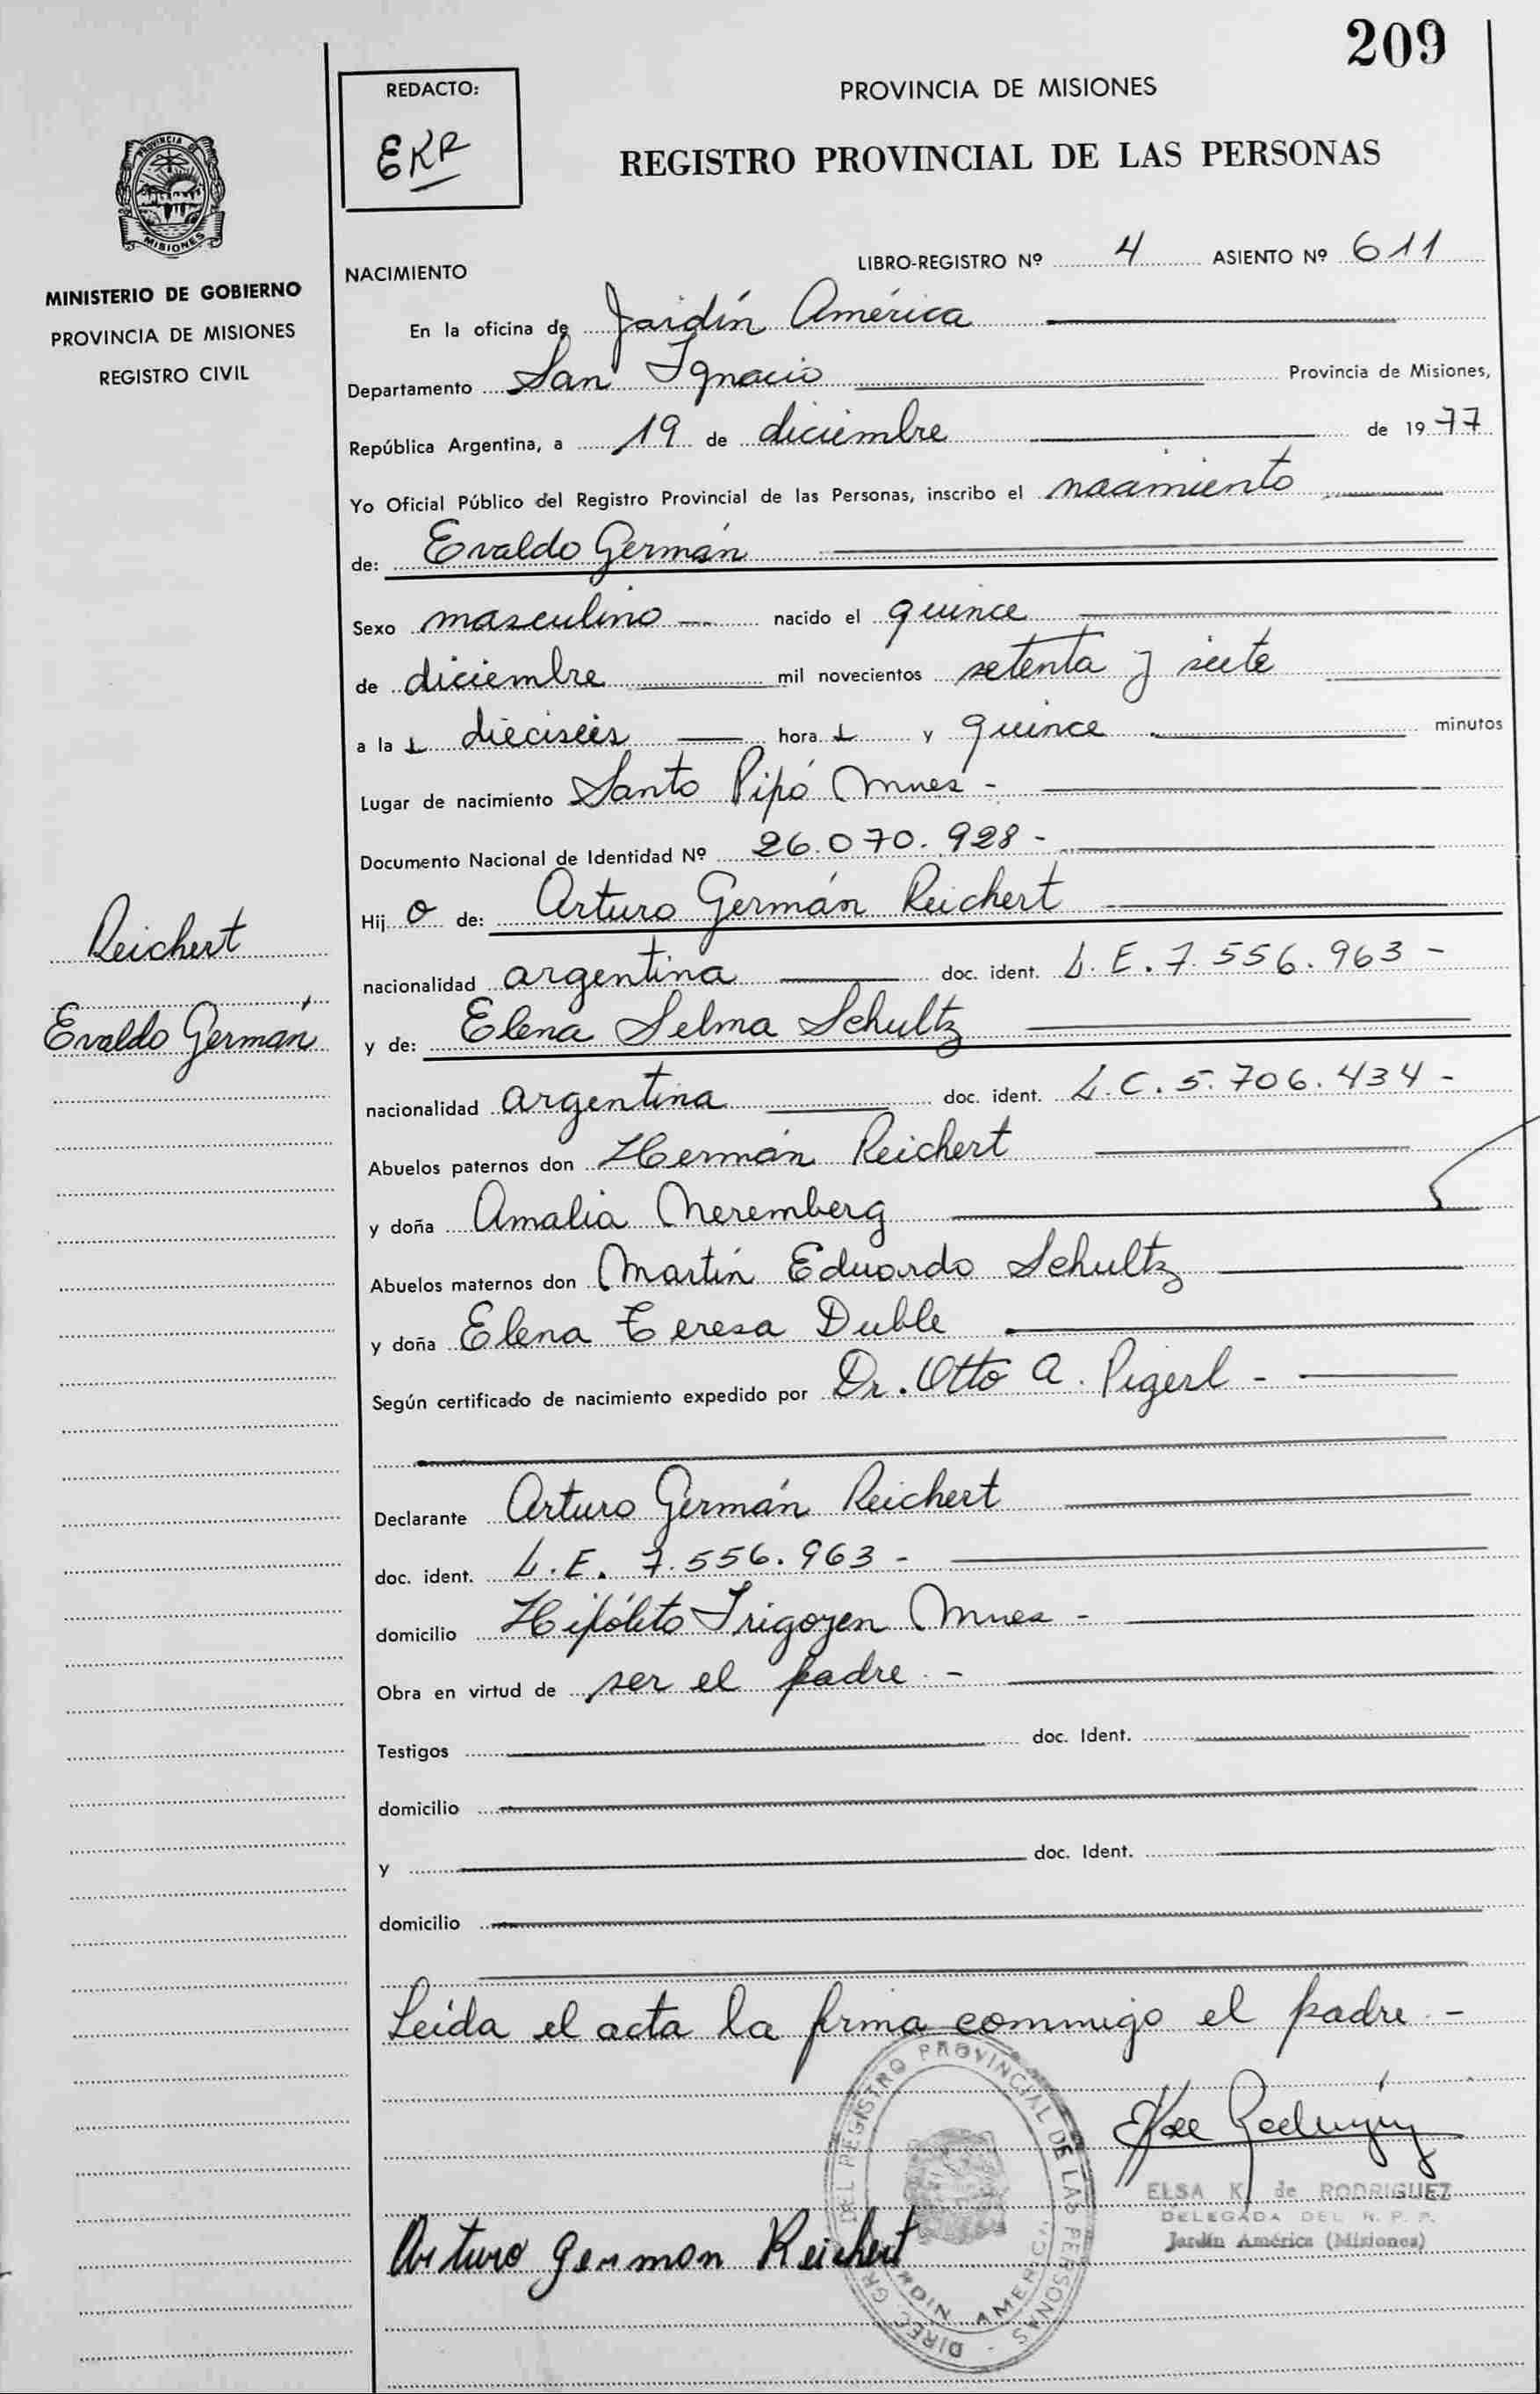 209
REDACTO:
EKR
PROVINCIA DE MISIONES
REGISTRO PROVINCIAL DE LAS PERSONAS
PROVINCIA DE
MISIONES
MINISTERIO DE GOBIERNO
PROVINCIA DE MISIONES
REGISTRO CIVIL
LIBRO-REGISTRO Nº 4 ASIENTO Nº 611
NACIMIENTO
En la oficina de Jardín América
Departamento San Ignacio Provincia de Misiones,
República Argentina, a 19 de diciembre de 1977
Yo Oficial Público del Registro Provincial de las Personas, inscribo el nacimiento
de: Evaldo Germán
Sexo masculino nacido el quince
de diciembre mil novecientos setenta y siete
a la s dieciseis hora s y quince minutos
Lugar de nacimiento Santo Pipó Mnes -
Documento Nacional de Identidad Nº 26.070.928-
Hij o de: Arturo Germán Reichert
Reichert
nacionalidad argentina doc. ident. L.E. 7.556.963-
Evaldo Germán
y de: Elena Selma Schultz
nacionalidad argentina doc. ident. L.C. 5.706.434-
Abuelos paternos don Hermán Reichert
y doña Amalia Neremberg
Abuelos maternos don Martín Eduardo Schultz
y doña Elena Teresa Duble
Según certificado de nacimiento expedido por Dr. Otto A. Pigerl -
Declarante Arturo Germán Reichert
doc. ident. L.E. 7.556.963-
domicilio Hipólito Irigoyen Mnes -
Obra en virtud de ser el padre.-
Testigos doc. Ident.
domicilio
y doc. Ident.
domicilio
Leída el acta la firma conmigo el padre.-
DIREC. GRAL. DEL REGISTRO PROVINCIAL DE LAS PERSONAS
JARDIN AMERICA
ELSA K. de RODRIGUEZ
DELEGADA DEL R. P. P.
Jardín América (Misiones)
Arturo german Reichert